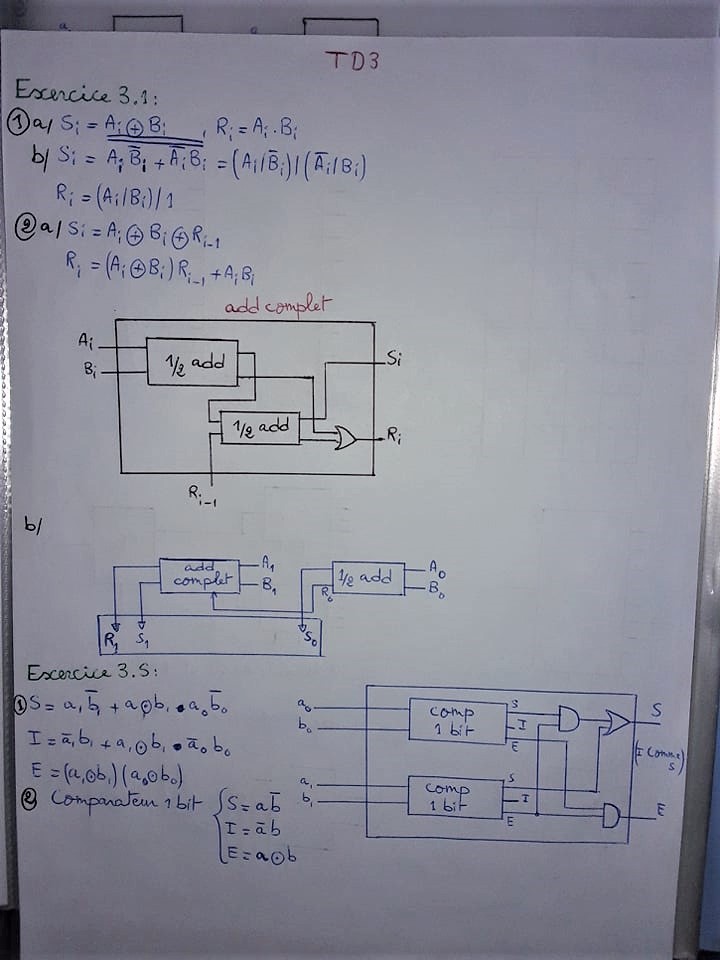 TD3
Exercice 3.1:
① a/ Si = Ai ⊕ Bi , Ri = Ai . Bi
b/ Si = Ai B̅i + A̅i Bi = (Ai/B̅i)/(A̅i/Bi)
Ri = (Ai/Bi)/1
② a/ Si = Ai ⊕ Bi ⊕ Ri-1
Ri = (Ai ⊕ Bi) Ri-1 + AiBi
add complet
Ai
Bi
1/2 add
Si
1/2 add
Ri
Ri-1
b/
add complet
A1
B1
1/2 add
A0
B0
R0
R1 S1 S0
Exercice 3.S:
① S = a1 b̅1 + a1⊙b1 • a0 b̅0
I = a̅1 b1 + a1⊙b1 • a̅0 b0
E = (a1⊙b1)(a0⊙b0)
② Comparateur 1 bit { S = a b̅
I = a̅ b
E = a ⊙ b
a0
b0
comp
1 bit
S
I
E
a1
b1
comp
1 bit
S
I
E
S
(I comme
S)
E